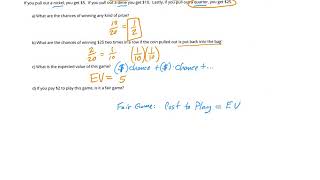 If you pull out a nickel, you get $5. If you pull out a dime you get $10. Lastly, if you pull out a quarter, you get $25.
a) What are the chances of winning any kind of prize?
10/20 = 1/2
b) What are the chances of winning $25 two times in a row if the coin pulled out is put back into the bag?
2/20 = 1/10 (1/10)(1/10)
c) What is the expected value of this game? ($)chance + ($)·chance + ...
EV = 5
d) If you pay $2 to play this game, is it a fair game?
Fair Game: Cost to Play = EV